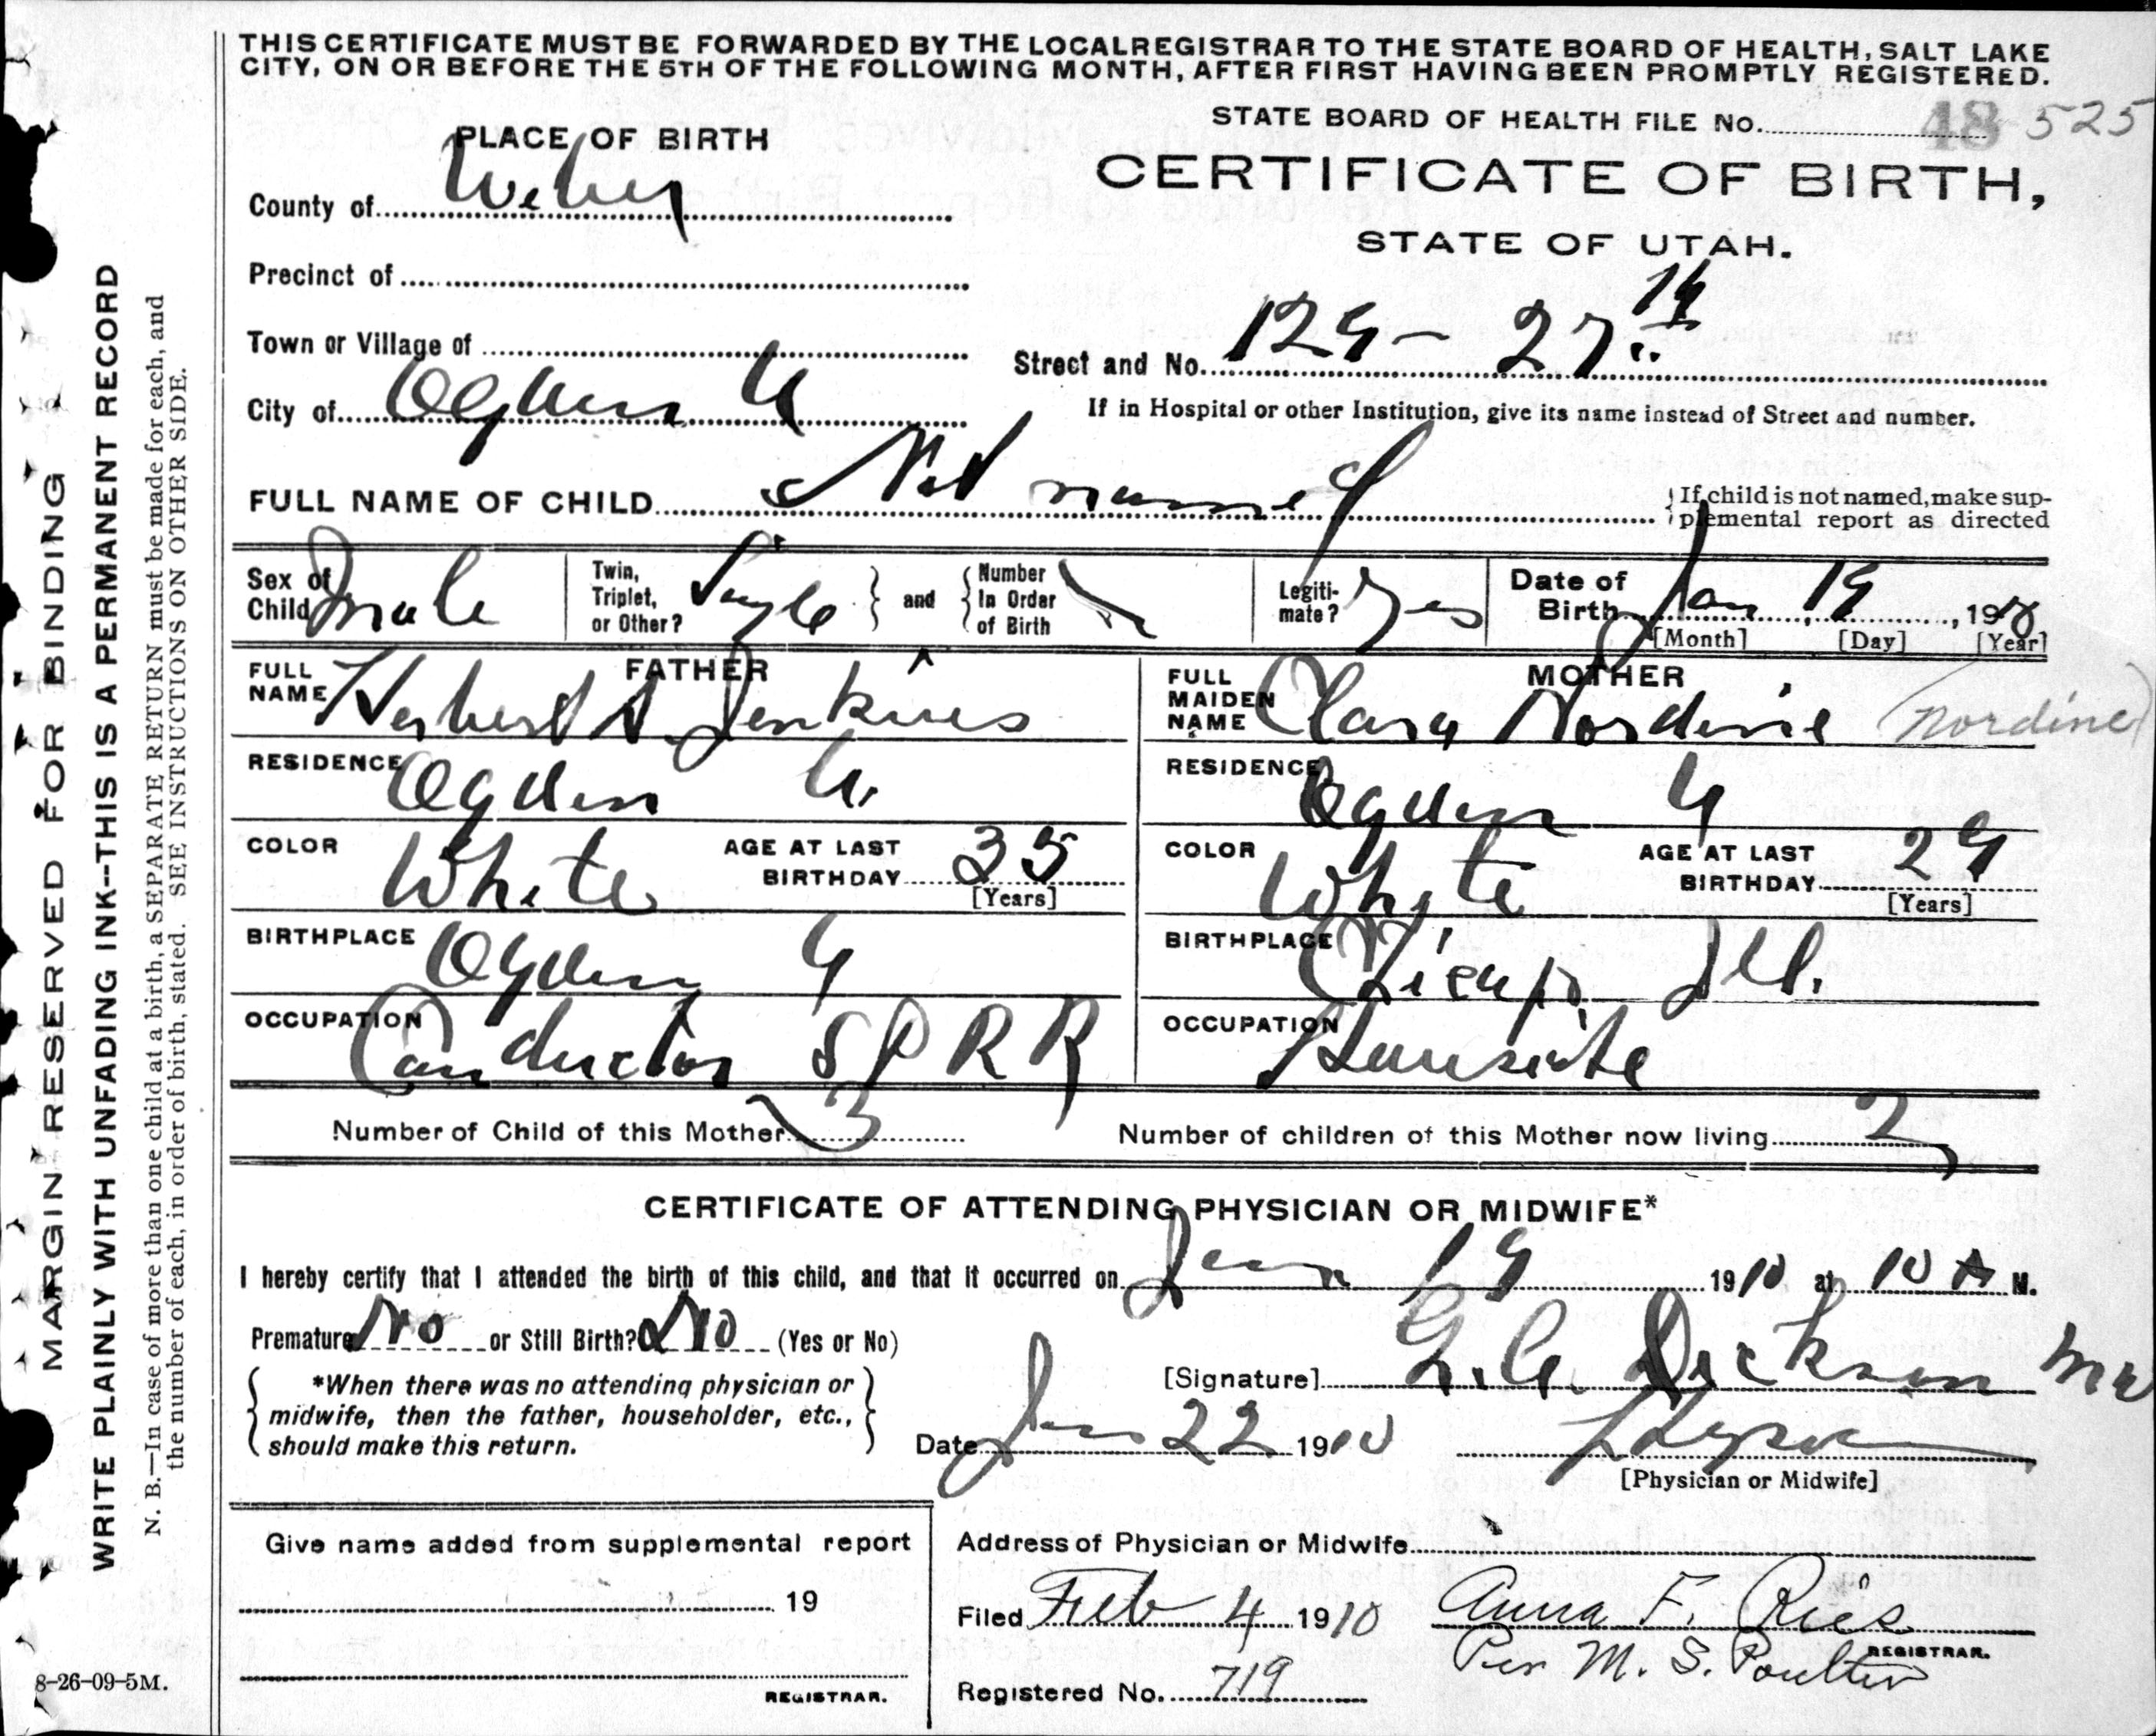 THIS CERTIFICATE MUST BE FORWARDED BY THE LOCAL REGISTRAR TO THE STATE BOARD OF HEALTH, SALT LAKE
CITY, ON OR BEFORE THE 5TH OF THE FOLLOWING MONTH, AFTER FIRST HAVING BEEN PROMPTLY REGISTERED.
STATE BOARD OF HEALTH FILE No. 48 525
CERTIFICATE OF BIRTH,
STATE OF UTAH.
PLACE OF BIRTH
County of Weber
Precinct of
Town or Village of
City of Ogden U
Street and No. 129 - 27th
If in Hospital or other Institution, give its name instead of Street and number.
FULL NAME OF CHILD Not named
{If child is not named, make sup-
plemental report as directed
Sex of Child Male
Twin, Triplet, or Other? Single
and
Number In Order of Birth
Legiti-mate? Yes
Date of Birth Jan 19, 1910
[Month] [Day] [Year]
FATHER
FULL NAME Herbert A. Jenkins
RESIDENCE Ogden U.
COLOR White
AGE AT LAST BIRTHDAY 35
[Years]
BIRTHPLACE Ogden U
OCCUPATION Conductor S P R R
MOTHER
FULL MAIDEN NAME Clara Nordine (Nordine)
RESIDENCE Ogden U
COLOR White
AGE AT LAST BIRTHDAY 29
[Years]
BIRTHPLACE Chicago, Ill.
OCCUPATION Housewife
Number of Child of this Mother 3
Number of children of this Mother now living 2
CERTIFICATE OF ATTENDING PHYSICIAN OR MIDWIFE*
I hereby certify that I attended the birth of this child, and that it occurred on Jan 19 1910 at 10 A M.
Premature No or Still Birth? No (Yes or No)
*When there was no attending physician or
midwife, then the father, householder, etc.,
should make this return.
[Signature] Dickson
Date Jan 22 1910
[Physician or Midwife]
Give name added from supplemental report
19
REGISTRAR.
Address of Physician or Midwife
Filed Feb 4 1910 Anna F. Ries
REGISTRAR.
Per M. S. Poulter
Registered No. 719
MARGIN RESERVED FOR BINDING
WRITE PLAINLY WITH UNFADING INK--THIS IS A PERMANENT RECORD
N. B.—In case of more than one child at a birth, a SEPARATE RETURN must be made for each, and
the number of each, in order of birth, stated. SEE INSTRUCTIONS ON OTHER SIDE.
8-26-09-5M.